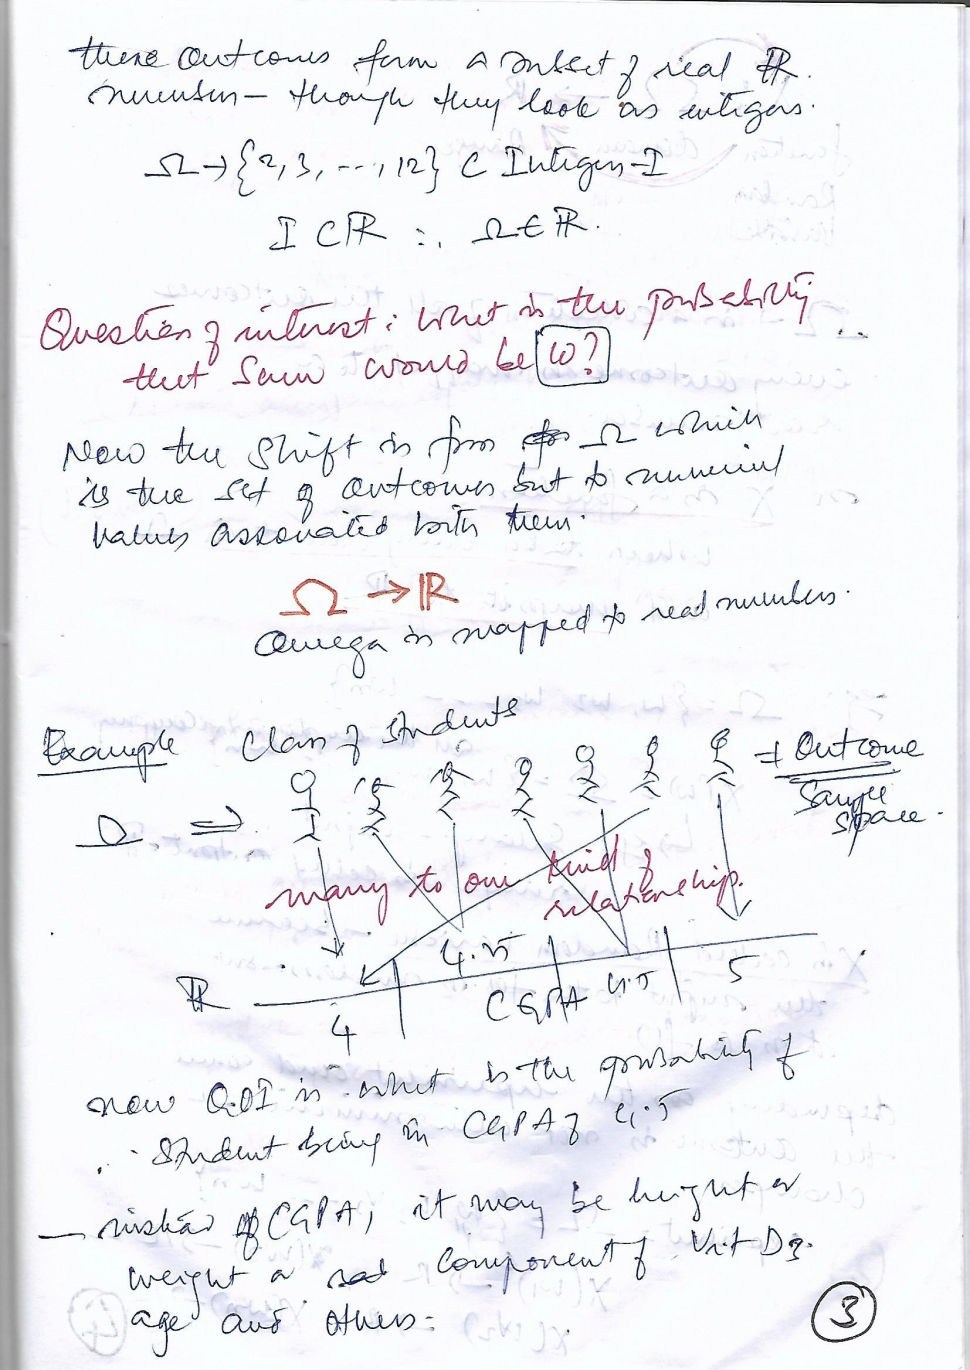 these outcomes form a subset of real ℝ.
numbers – though they look as integers.
Ω → {2, 3, ..., 12} ⊂ Integers – I
I ⊂ ℝ ∴ Ω ∈ ℝ.
Question of interest : What is the probability
that Sum would be 10?
Now the shift is from Ω which
is the set of outcomes but to numerical
values associated with them.
Ω → ℝ
Omega is mapped to real numbers.
Example Class of Students
Ω ⇒ → Outcome
Sample
space.
many to one kind of
relationship.
ℝ 4 4.25 CGPA 4.5 5
now QOI is what is the probability of
student being in CGPA of 4.5
— instead of CGPA, it may be height or
weight or component of Vit D3.
age and others =
3